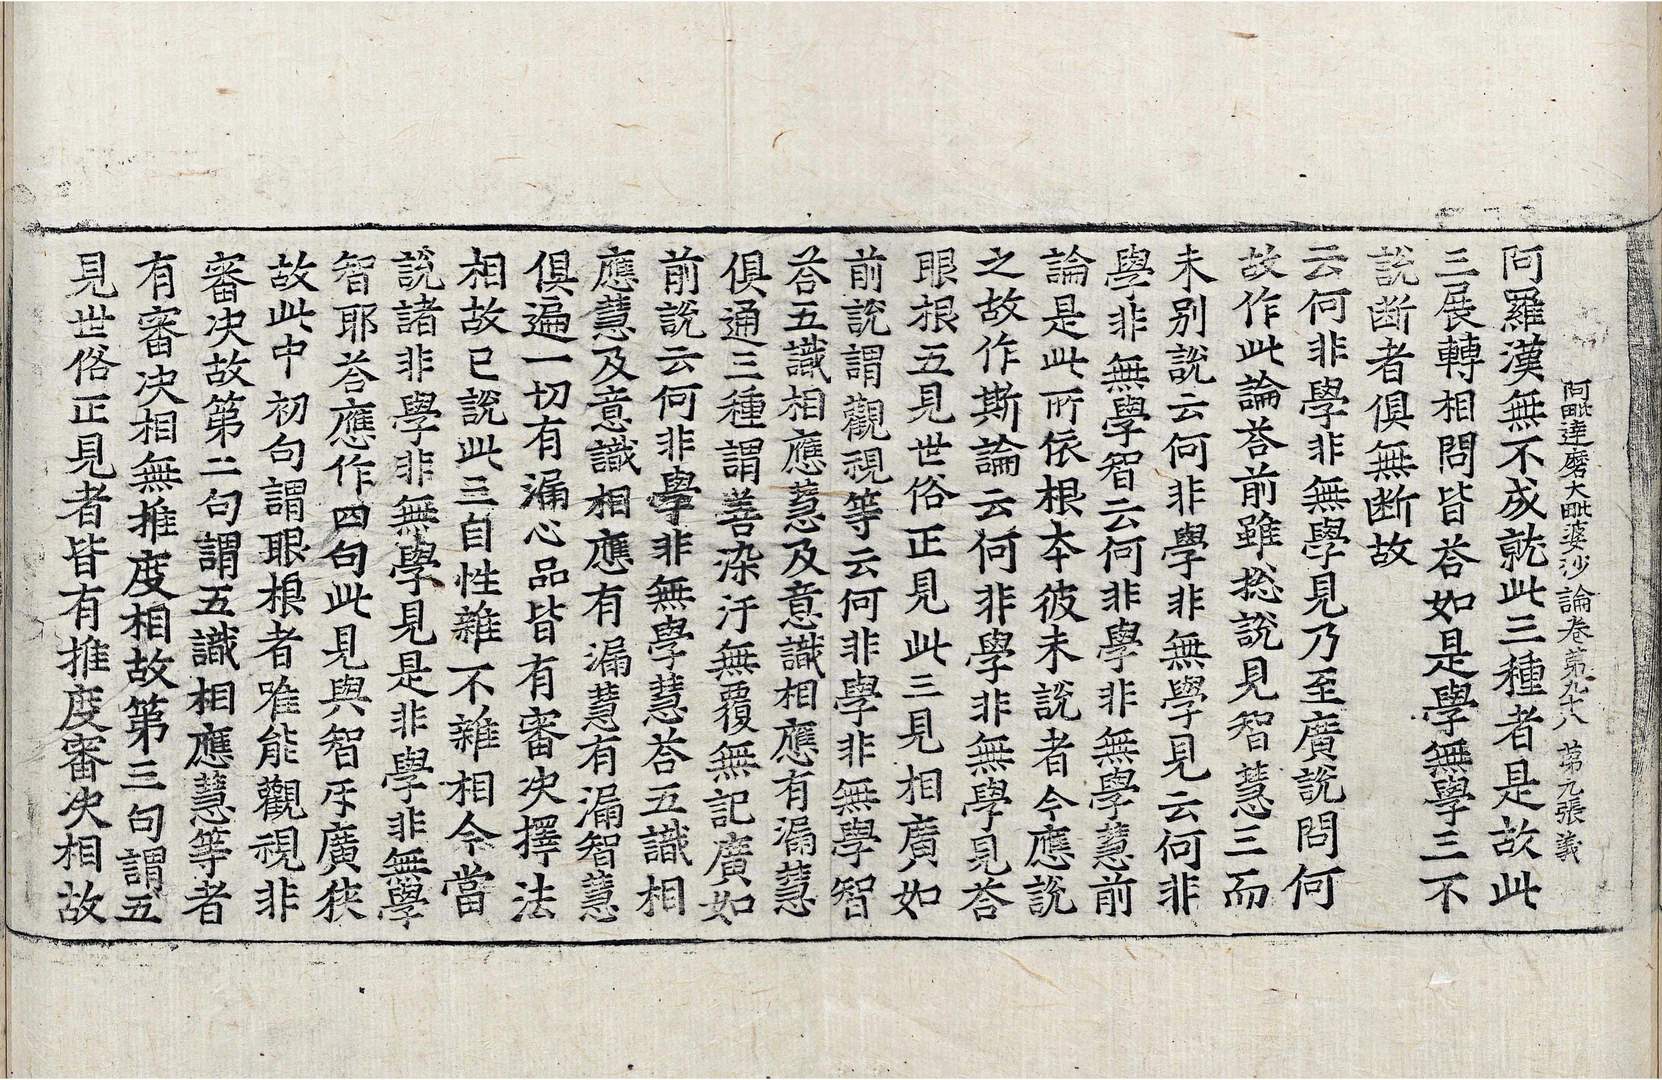 阿毗達磨大毗婆沙論卷第九十八 第九張 義
阿羅漢無不成就此三種者是故此
三展轉相問皆荅如是學無學三不
說断者俱無断故
云何非學非無學見乃至廣說問何
故作此論荅前雖捴說見智慧三而
未別說云何非學非無學見云何非
學非無學智云何非學非無學慧前
論是此所依根本彼未說者今應說
之故作斯論云何非學非無學見荅
眼根五見世俗正見此三見相廣如
前說謂觀視等云何非學非無學智
荅五識相應慧及意識相應有漏慧
俱通三種謂善染汙無覆無記廣如
前說云何非學非無學慧荅五識相
應慧及意識相應有漏慧有漏智慧
俱遍一切有漏心品皆有審決擇法
相故已說此三自性雜不雜相今當
說諸非學非無學見是非學非無學
智耶荅應作四句此見與智互廣狹
故此中初句謂眼根者唯能觀視非
審決故第二句謂五識相應慧等者
有審決相無推度相故第三句謂五
見世俗正見者皆有推度審決相故